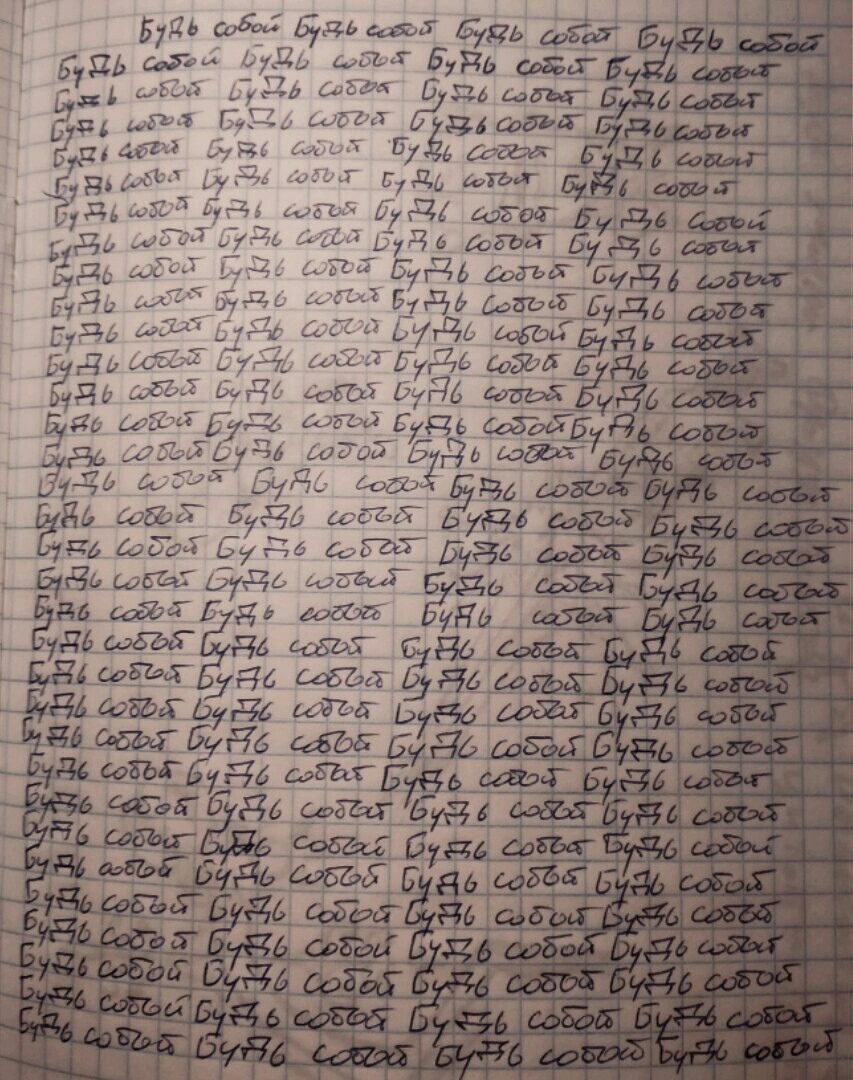 Будь собой Будь собой Будь собой Будь собой
Будь собой Будь собой Будь собой Будь собой
Будь собой Будь собой Будь собой Будь собой
Будь собой Будь собой Будь собой Будь собой
Будь собой Будь собой Будь собой Будь собой
Будь собой Будь собой Будь собой Будь собой
Будь собой Будь собой Будь собой Будь собой
Будь собой Будь собой Будь собой Будь собой
Будь собой Будь собой Будь собой Будь собой
Будь собой Будь собой Будь собой Будь собой
Будь собой Будь собой Будь собой Будь собой
Будь собой Будь собой Будь собой Будь собой
Будь собой Будь собой Будь собой Будь собой
Будь собой Будь собой Будь собой Будь собой
Будь собой Будь собой Будь собой Будь собой
Будь собой Будь собой Будь собой Будь собой
Будь собой Будь собой Будь собой Будь собой
Будь собой Будь собой Будь собой Будь собой
Будь собой Будь собой Будь собой Будь собой
Будь собой Будь собой Будь собой Будь собой
Будь собой Будь собой Будь собой Будь собой
Будь собой Будь собой Будь собой Будь собой
Будь собой Будь собой Будь собой Будь собой
Будь собой Будь собой Будь собой Будь собой
Будь собой Будь собой Будь собой Будь собой
Будь собой Будь собой Будь собой Будь собой
Будь собой Будь собой Будь собой Будь собой
Будь собой Будь собой Будь собой Будь собой
Будь собой Будь собой Будь собой Будь собой
Будь собой Будь собой Будь собой Будь собой
Будь собой Будь собой Будь собой Будь собой
Будь собой Будь собой Будь собой Будь собой
Будь собой Будь собой Будь собой Будь собой